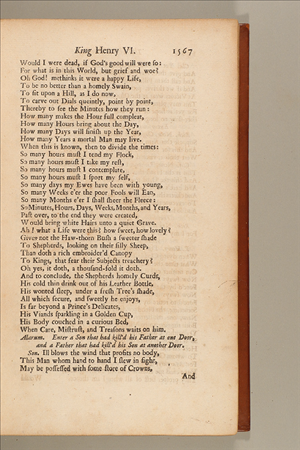 King Henry VI. 1567
Would I were dead, if God's good will were so:
For what is in this World, but grief and woe?
Oh God! methinks it were a happy Life,
To be no better than a homely Swain,
To sit upon a Hill, as I do now,
To carve out Dials queintly, point by point,
Thereby to see the Minutes how they run:
How many makes the Hour full compleat,
How many Hours bring about the Day,
How many Days will finish up the Year,
How many Years a mortal Man may live.
When this is known, then to divide the times:
So many hours must I tend my Flock,
So many hours must I take my rest,
So many hours must I contemplate,
So many hours must I sport my self,
So many days my Ewes have been with young,
So many Weeks e'er the poor Fools will Ean,
So many Months e'er I shall sheer the Fleece:
So Minutes, Hours, Days, Weeks, Months, and Years,
Past over, to the end they were created,
Would bring white Hairs unto a quiet Grave.
Ah! what a Life were this! how sweet, how lovely?
Gives not the Haw-thorn Bush a sweeter shade
To Shepherds, looking on their silly Sheep,
Than doth a rich embroider'd Canopy
To Kings, that fear their Subjects treachery?
Oh yes, it doth, a thousand-fold it doth.
And to conclude, the Shepherds homely Curds,
His cold thin drink out of his Leather Bottle,
His wonted sleep, under a fresh Tree's shade,
All which secure, and sweetly he enjoys,
Is far beyond a Prince's Delicates,
His Viands sparkling in a Golden Cup,
His Body couched in a curious Bed,
When Care, Mistrust, and Treasons waits on him.
Alarum. Enter a Son that had kill'd his Father at one Door,
and a Father that had kill'd his Son at another Door.
Son. Ill blows the wind that profits no body,
This Man whom hand to hand I slew in fight,
May be possessed with some store of Crowns,
And